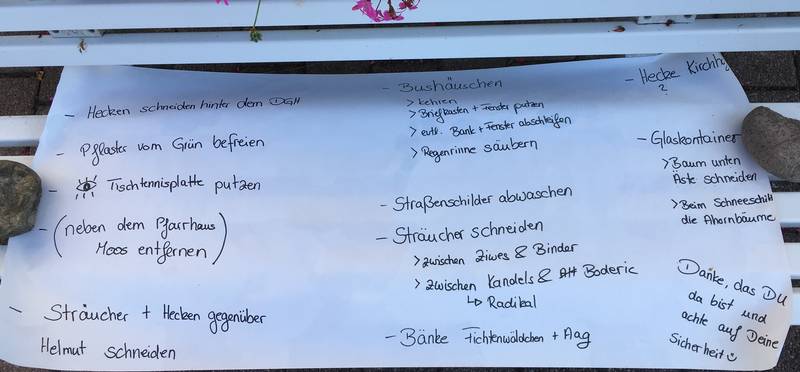 - Hecken schneiden hinter dem DGH
- Pflaster vom Grün befreien
- Tischtennisplatte putzen
- (neben dem Pfarrhaus
Moos entfernen)
- Sträucher + Hecken gegenüber
Helmut schneiden
- Bushäuschen
> kehren
> Briefkasten + Fenster putzen
> evtl. Bank + Fenster abschleifen
> Regenrinne säubern
- Straßenschilder abwaschen
- Sträucher schneiden
> zwischen Ziwes & Binder
> zwischen Kandels & Boderic
↳ Radikal
- Bänke Fichtenwäldchen + Aag
- Hecke Kirch
?
- Glaskontainer
> Baum unten
Äste schneiden
> Beim Schneeschi
die Ahornbäume
Danke, das DU
da bist und
achte auf Deine
Sicherheit ☺